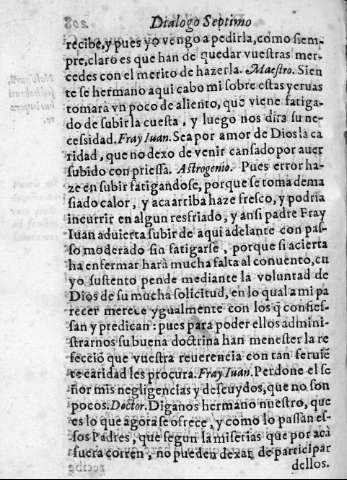 Dialogo Septimo
recibe, y pues yo vengo a pedirla, como siem-
pre, claro es que han de quedar vuestras mer-
cedes con el merito de hazerla. Maestro. Sien
te se hermano aqui cabo mi sobre estas yeruas
tomarà vn poco de aliento, que viene fatiga-
do de subir la cuesta, y luego nos dira su ne-
cessidad. Fray Iuan. Sea por amor de Dios la ca
ridad, que no dexo de venir cansado por auer
subido con priessa. Astrogenio. Pues error ha-
ze en subir fatigandose, porque se toma dema
siado calor, y aca arriba haze fresco, y podria
incurrir en algun resfriado, y ansi padre Fray
Iuan aduierta subir de aqui adelante con pas-
so moderado sin fatigarse, porque si acierta
ha enfermar harà mucha falta al conuento, cu
yo sustento pende mediante la voluntad de
Dios de su mucha solicitud, en lo qual a mi pa
recer merece ygualmente con los q̃ confies-
san y predican: pues para poder ellos admini-
strarnos su buena doctrina han menester la re
fecciõ que vuestra reuerencia con tan feruiẽ
te caridad les procura. Fray Iuan. Perdone el se
ñor mis negligencias y descuydos, que no son
pocos. Doctor. Diganos hermano nuestro, que
es lo que agora se ofrece, y como lo passan es-
sos Padres, que segun la miserias que por acà
fuera corren, no pueden dexar de participar
dellos.